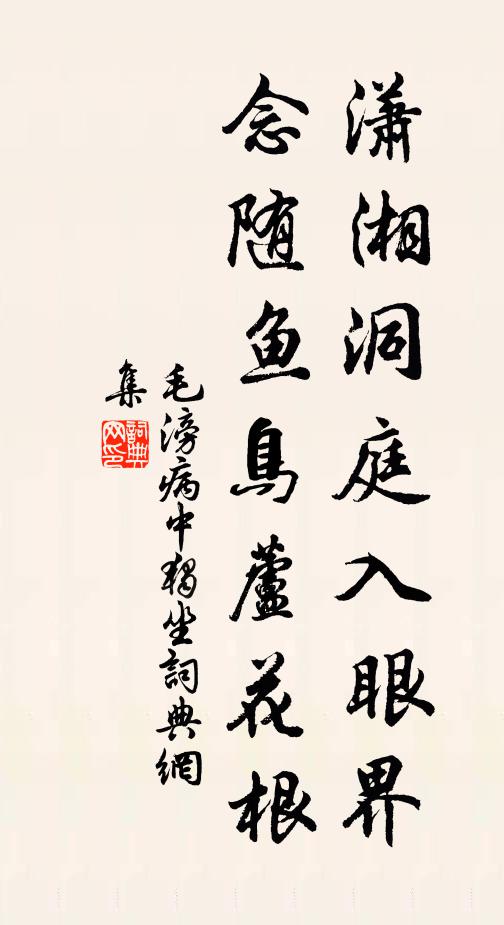 潇湘洞庭入眼界
念随鱼鳥蘆花根
毛滂病中獨坐詞典網
集
詞典網印